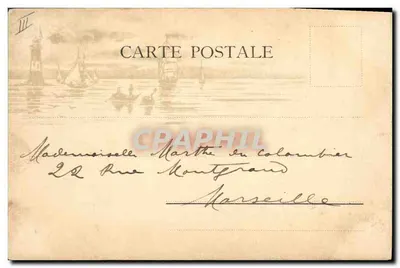 III
CARTE POSTALE
CARPHIL
Mademoiselle Marthe du Colombier
22 Rue Montgrand
Marseille